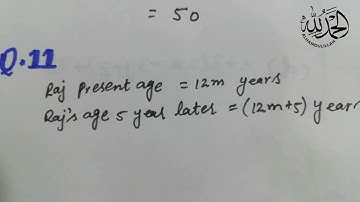 = 50
Q.11
Raj Present age = 12m years
Raj's age 5 year later = (12m+5) year
ALHAMDULILLAH